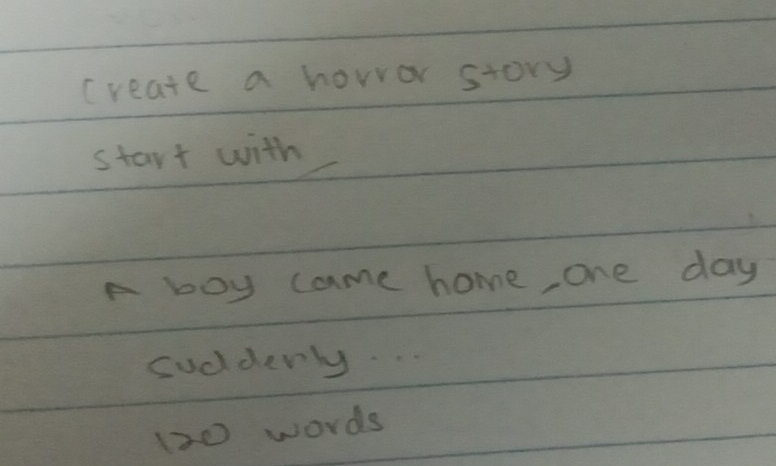 Create a horror story
start with_
A boy came home, one day
suddenly...
120 words